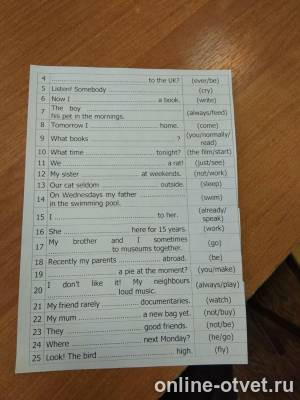 4 ........ to the UK? (ever/be)
5 Listen! Somebody ........ (cry)
6 Now I ........ a book. (write)
7 The boy ........ his pet in the mornings. (always/feed)
8 Tomorrow I ........ home. (come)
9 What books ........ ? (you/normally/read)
10 What time ........ tonight? (the film/start)
11 We ........ a rat! (just/see)
12 My sister ........ at weekends. (not/work)
13 Our cat seldom ........ outside. (sleep)
14 On Wednesdays my father ........ in the swimming pool. (swim)
15 I ........ to her. (already/speak)
16 She ........ here for 15 years. (work)
17 My brother and I sometimes ........ to museums together. (go)
18 Recently my parents ........ abroad. (be)
19 ........ a pie at the moment? (you/make)
20 I don't like it! My neighbours ........ loud music. (always/play)
21 My friend rarely ........ documentaries. (watch)
22 My mum ........ a new bag yet. (not/buy)
23 They ........ good friends. (not/be)
24 Where ........ next Monday? (he/go)
25 Look! The bird ........ high. (fly)
online-otvet.ru